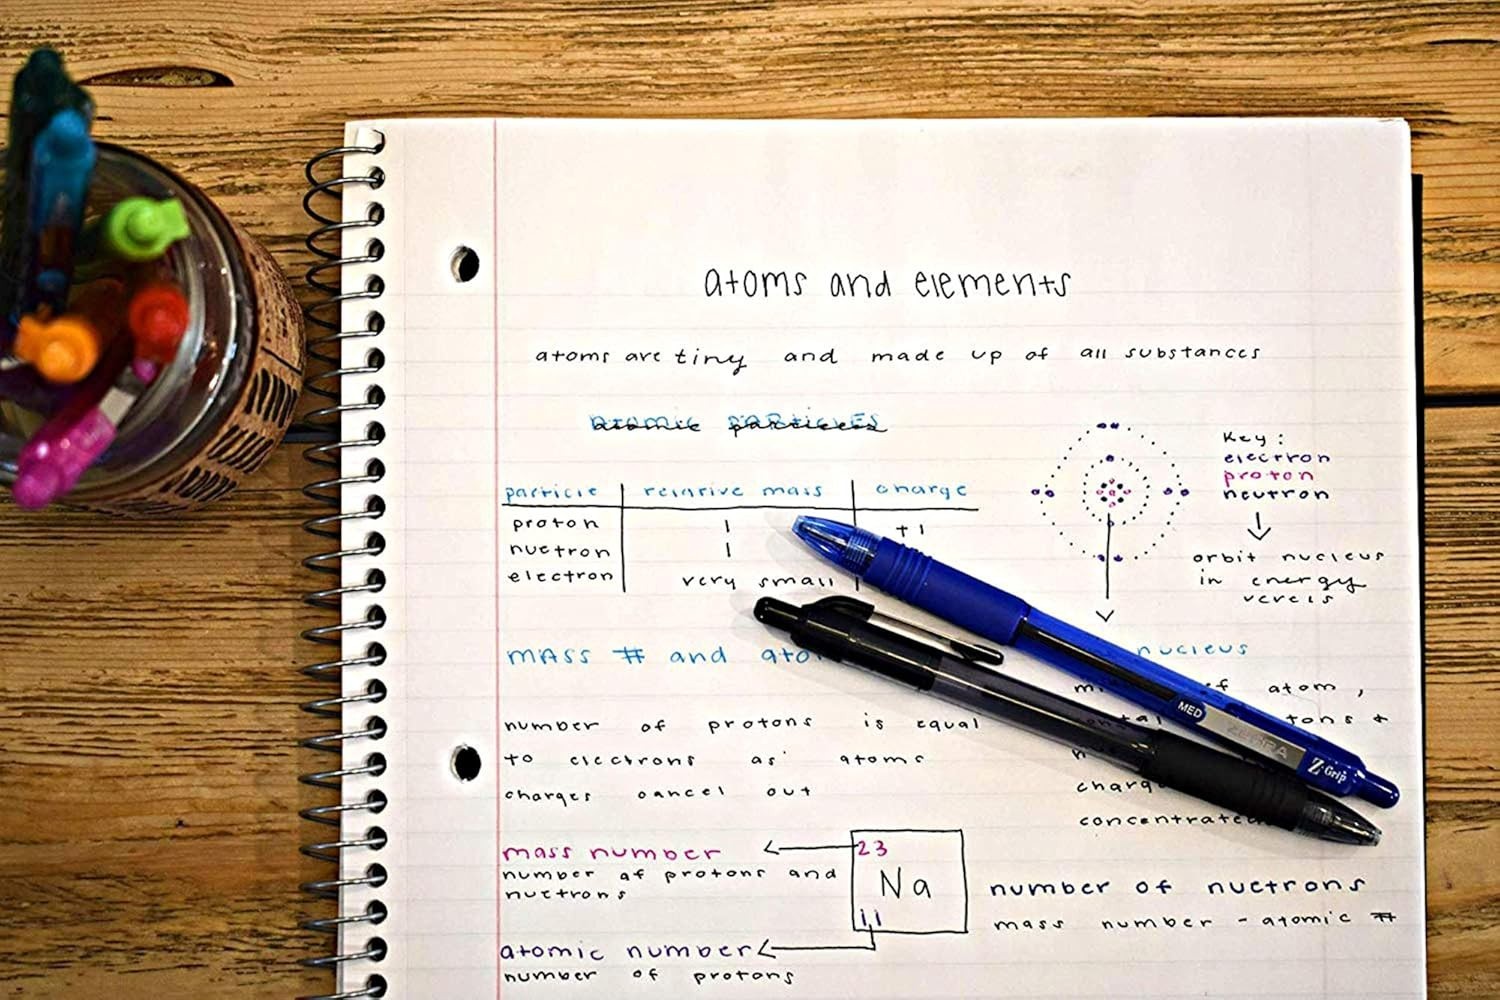 atoms and elements
atoms are tiny and made up of all substances
atomic particles
particle relative mass charge
proton 1 +1
nuetron 1
electron very small
Key:
electron
proton
neutron
orbit nucleus
in energy
mass # and
nucleus
atom,
number of protons is equal
to electrons as atoms
charges cancel out
concentrated
mass number
number of protons and
nuetrons
23
Na
11
atomic number
number of protons
number of nuetrons
mass number - atomic #
MED
ZEBRA
Z-Grip